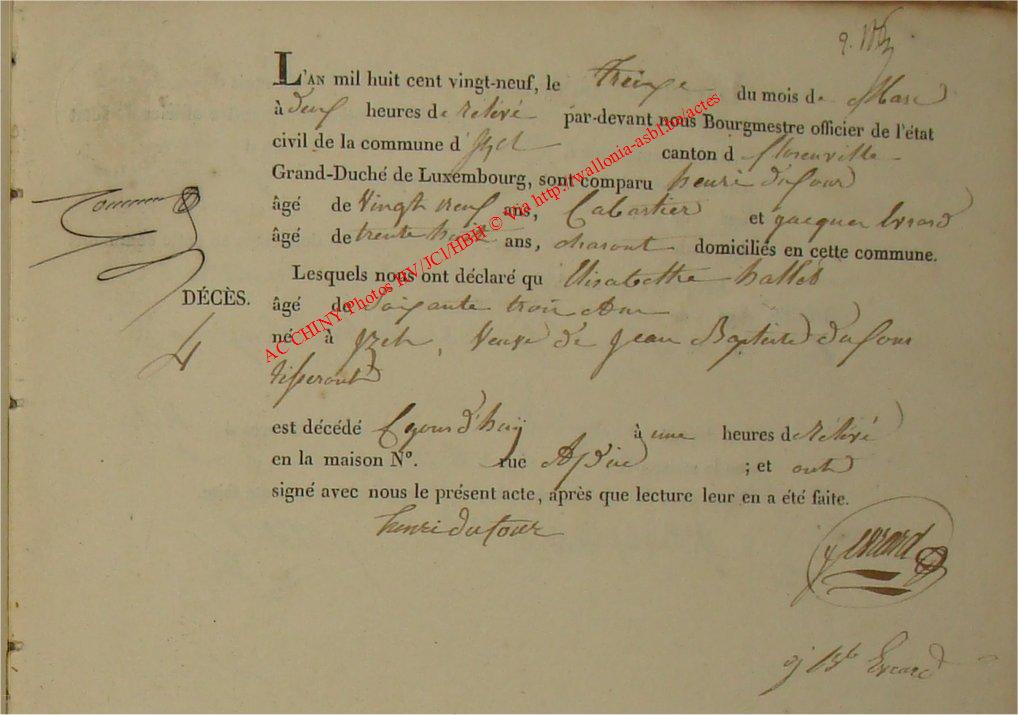 L'AN mil huit cent vingt-neuf, le treize du mois de Mars
à deux heures de rélévé par-devant nous Bourgmestre officier de l'état
civil de la commune d'Izel canton d florenville
Grand-Duché de Luxembourg, sont comparu henri dufour
âgé de Vingt neuf ans, Cabartier et jacques Evrard
âgé de trente huit ans, charont domiciliés en cette commune.
Lesquels nous ont déclaré qu Elisabethe hallet
âgé de Soixante trois Ans
né à Izel, Veuve de Jean Baptiste dufour
tisserant
DÉCÈS.
4
est décédé à une heures de rélévé
en la maison No. rue ; et ont
signé avec nous le présent acte, après que lecture leur en a été faite.
henri dufour
J evrard
j Bte Evrard
AC CHINY Photos RV/JCl/HBH © via http://wallonia-asbl.be/actes